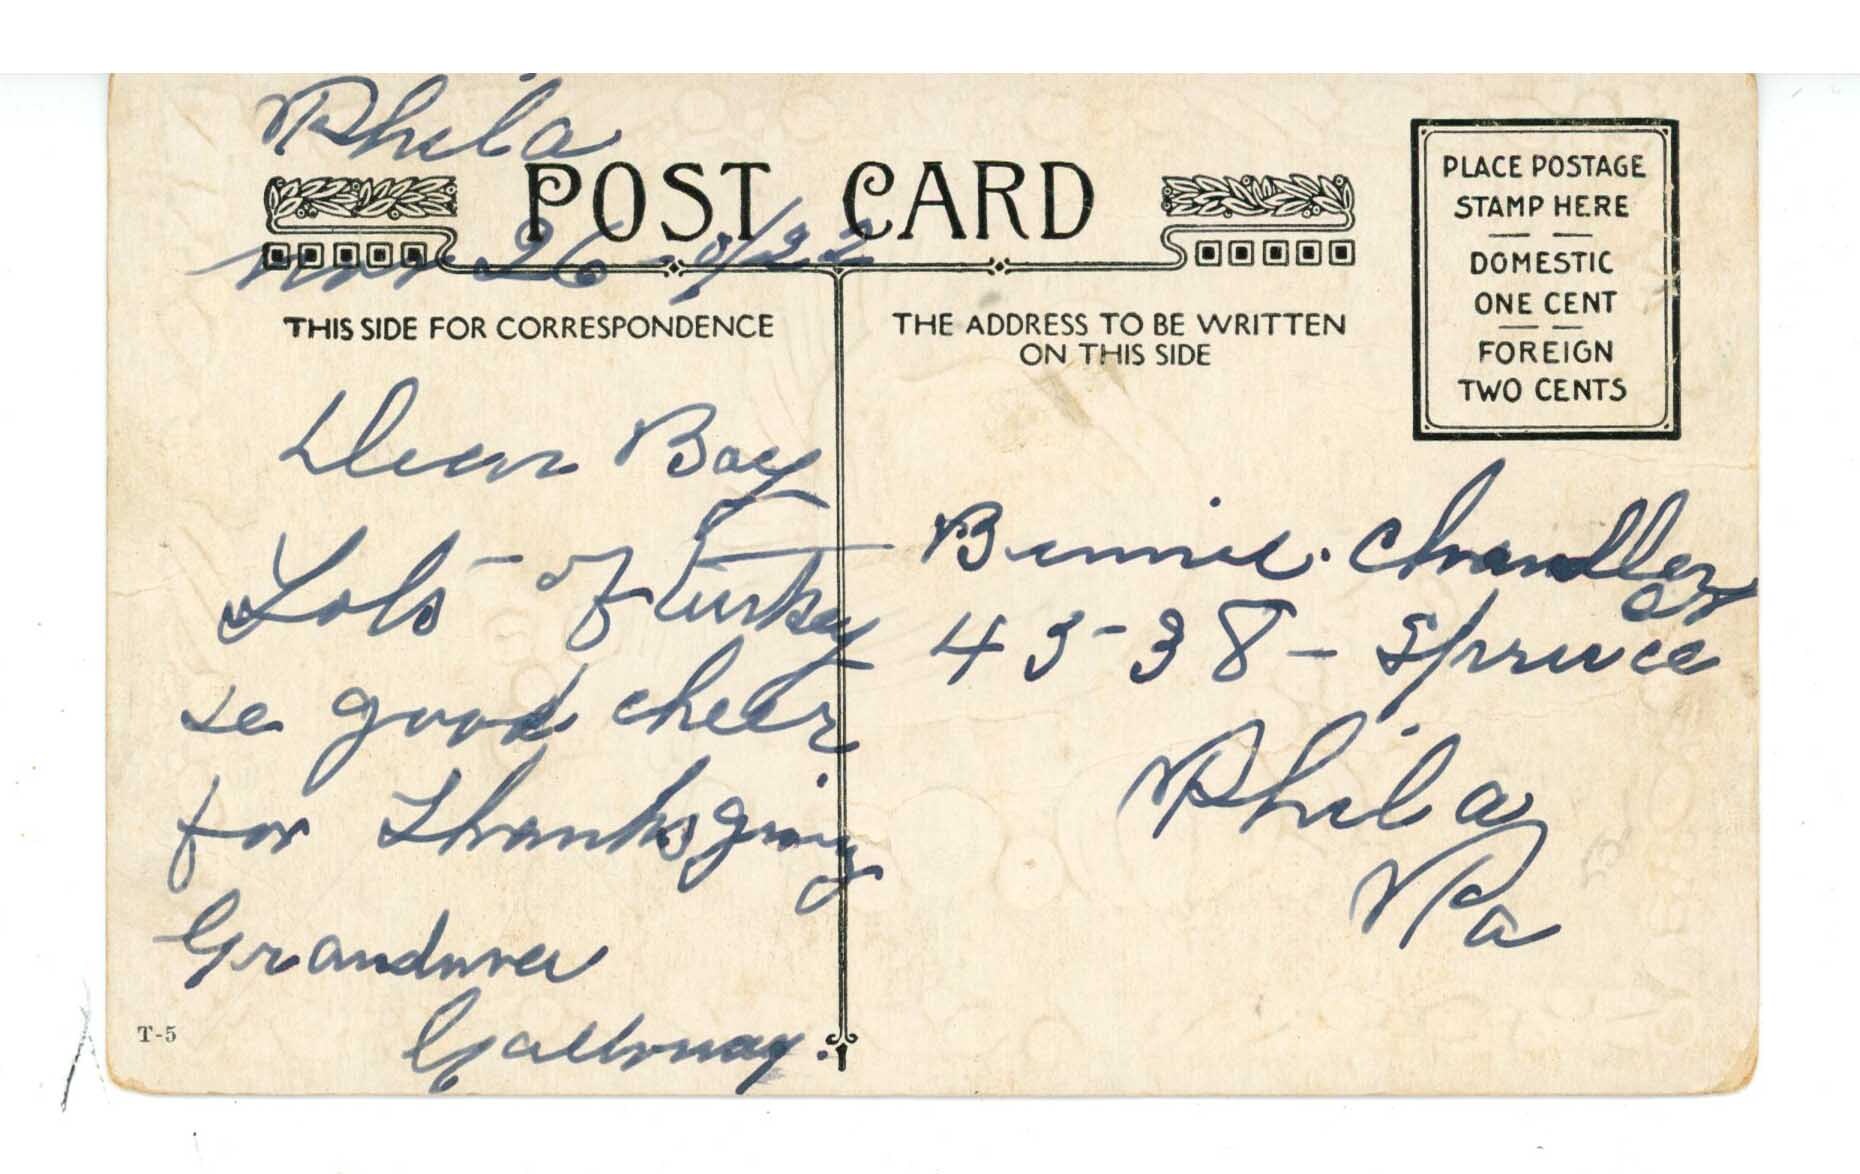 Phila
POST CARD
Nov 26 - 1922
THIS SIDE FOR CORRESPONDENCE
THE ADDRESS TO BE WRITTEN
ON THIS SIDE
PLACE POSTAGE
STAMP HERE
DOMESTIC
ONE CENT
FOREIGN
TWO CENTS
Dear Boy
Lots - of turkey
good cheer
for Thanksgiving
Galloway.
T-5
Chandler
45-38 - Spruce
Phila
Pa